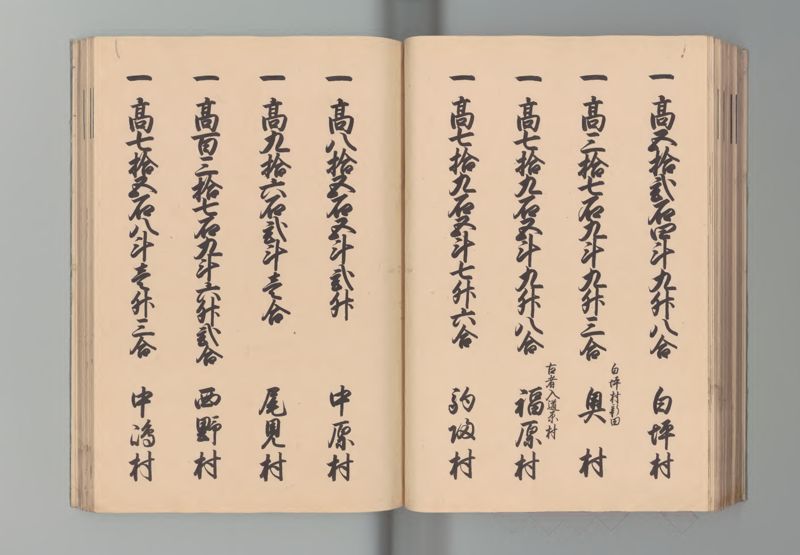 一 高五拾弐石四斗九升八合 白坪村
白坪村新田
一 高三拾七石九斗九升三合 奥村
古者入道原村
一 高七拾九石五斗九升八合 福原村
一 高七拾九石五斗七升六合 村
一 高八拾五石五斗弐升 中原村
一 高九拾六石弐斗壱合 尾見村
一 高百三拾七石九斗六升弐合 西野村
一 高七拾五石八斗壱升三合 中嶋村